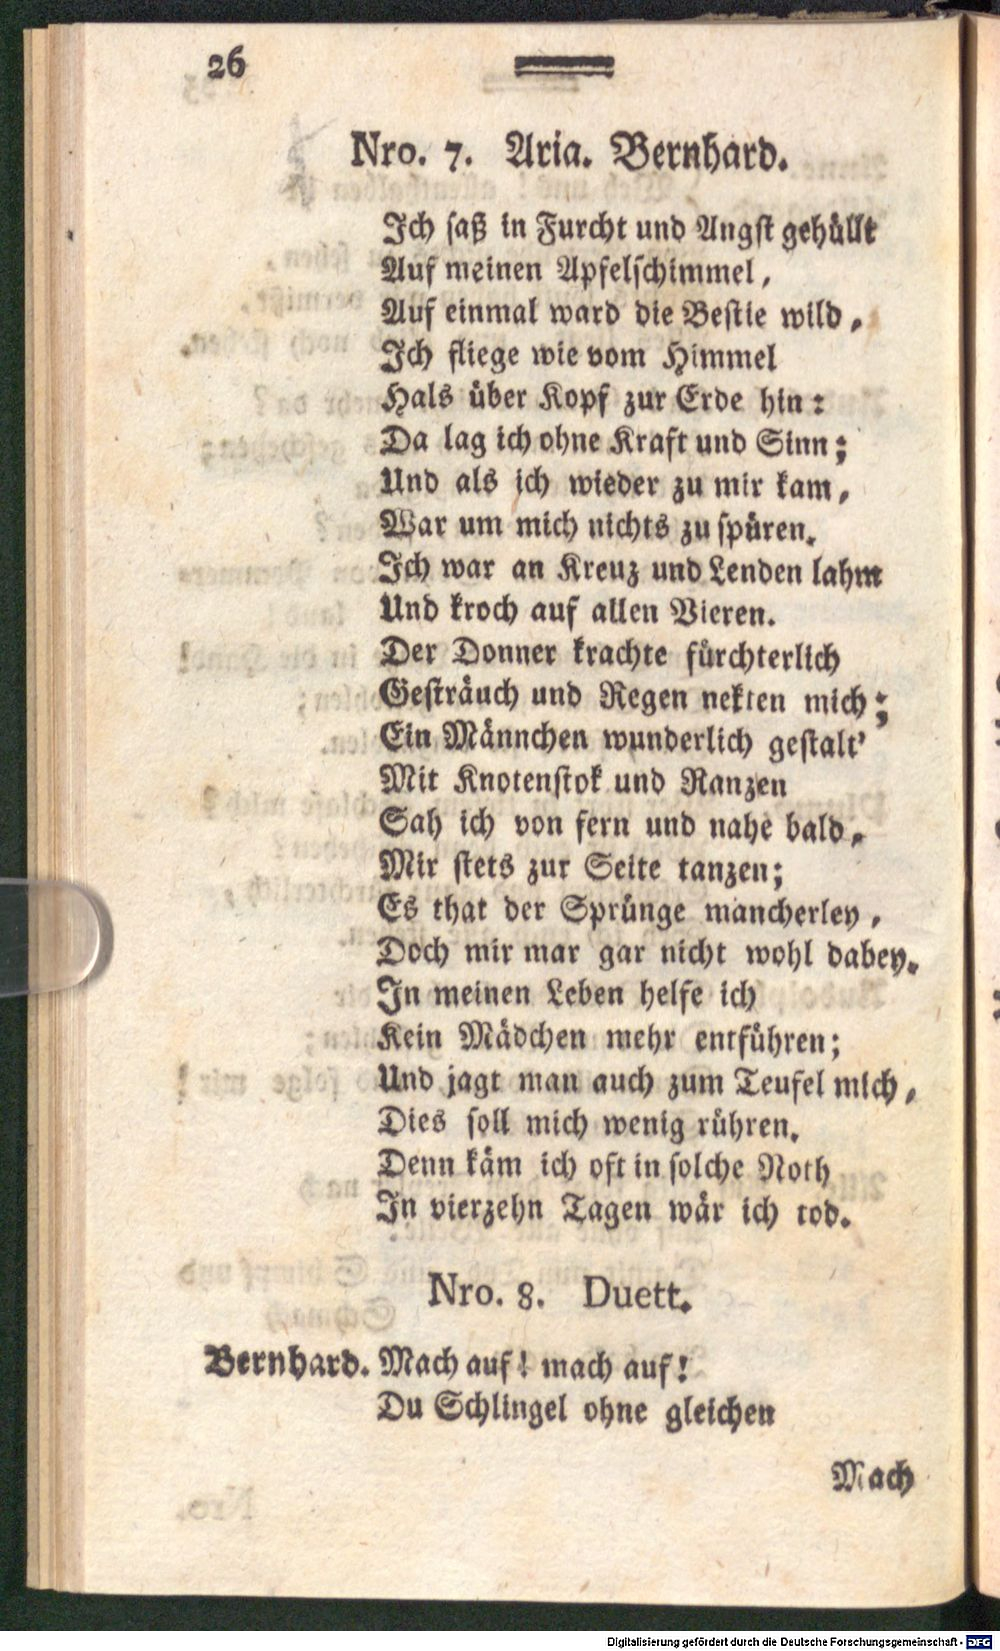 26
Nro. 7. Aria. Bernhard.
Ich saß in Furcht und Angst gehüllt
Auf meinen Apfelschimmel,
Auf einmal ward die Bestie wild,
Ich fliege wie vom Himmel
Hals über Kopf zur Erde hin:
Da lag ich ohne Kraft und Sinn;
Und als ich wieder zu mir kam,
War um mich nichts zu spüren.
Ich war an Kreuz und Lenden lahm
Und kroch auf allen Vieren.
Der Donner krachte fürchterlich
Gesträuch und Regen nekten mich;
Ein Männchen wunderlich gestalt'
Mit Knotenstok und Ranzen
Sah ich von fern und nahe bald,
Mir stets zur Seite tanzen;
Es that der Sprünge mancherley,
Doch mir mar gar nicht wohl dabey.
In meinen Leben helfe ich
Kein Mädchen mehr entführen;
Und jagt man auch zum Teufel mich,
Dies soll mich wenig rühren.
Denn käm ich oft in solche Noth
In vierzehn Tagen wär ich tod.
Nro. 8. Duett.
Bernhard. Mach auf! mach auf!
Du Schlingel ohne gleichen
Mach
Digitalisierung gefördert durch die Deutsche Forschungsgemeinschaft - DFG